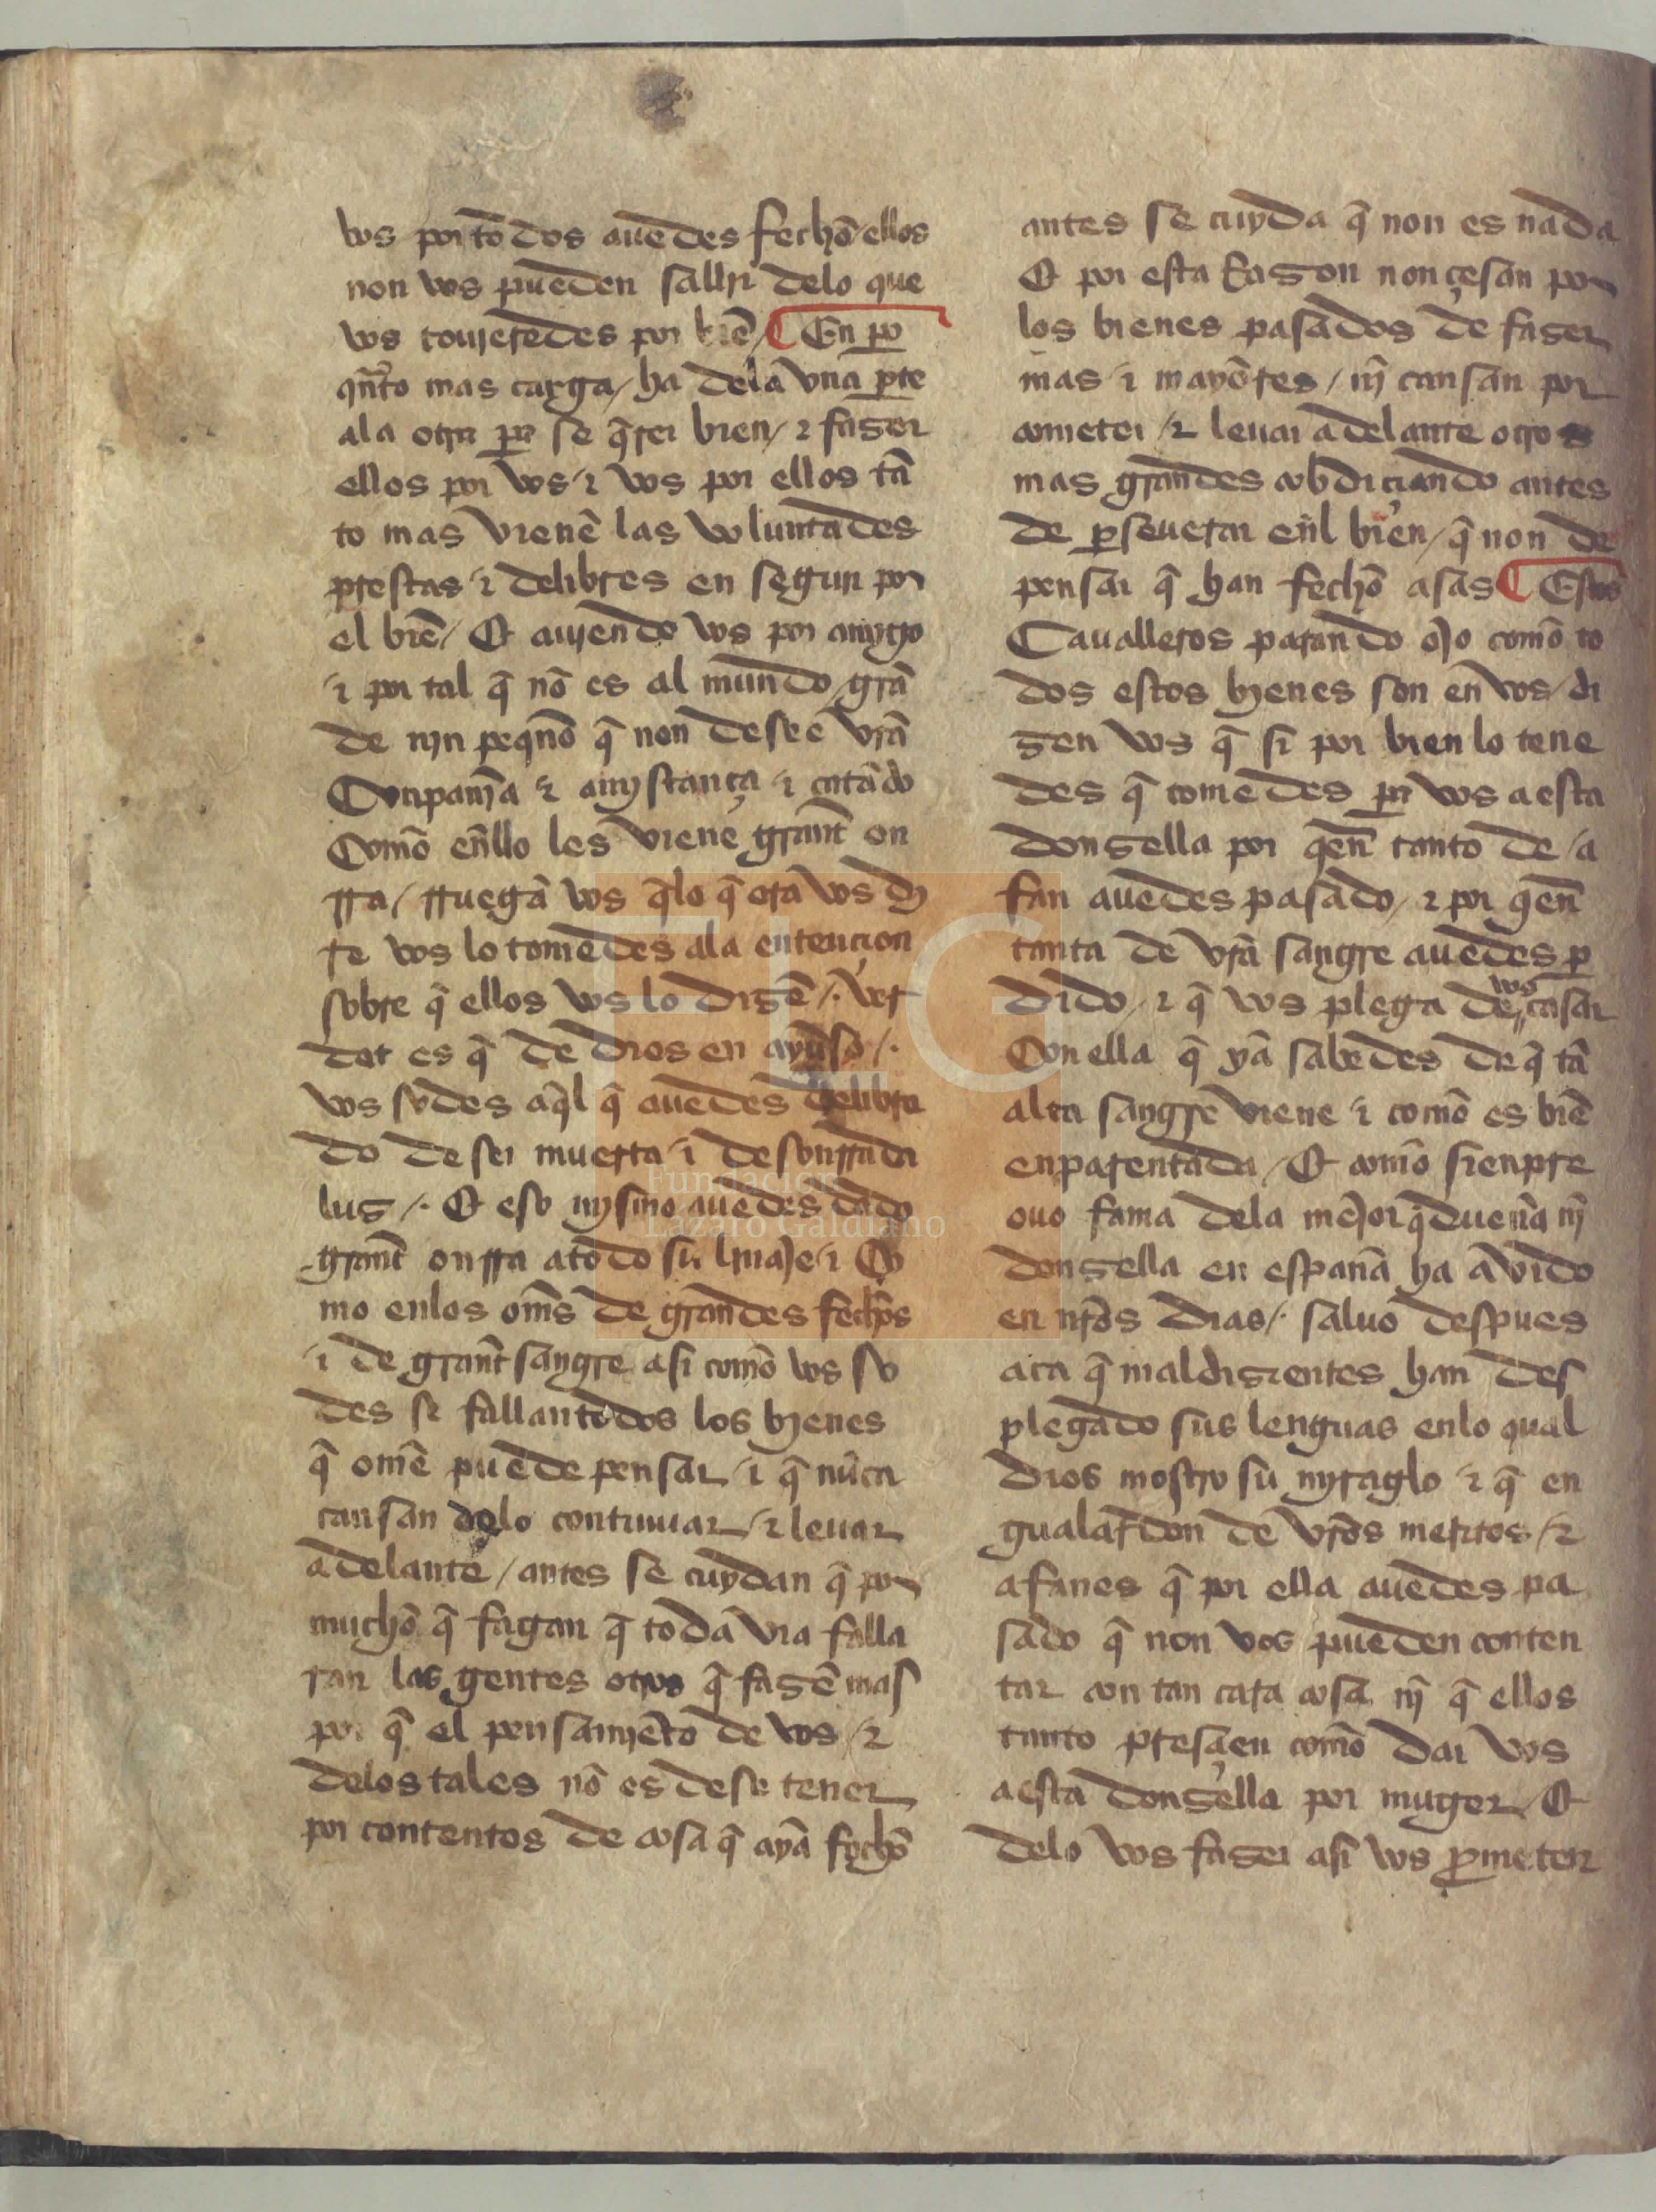 vos por todos auedes fechõ ellos
non vos pueden sallir delo que
vos touieredes por biẽ / ¶ En pero
qñto mas carga / ha dela vna pte
ala otra pa se q̃rer bien / ⁊ faser
ellos por vos ⁊ vos por ellos tã
to mas vienẽ las voluntades
prestas ⁊ delibres en segun por
el biẽ / Et auiendo vos por amygo
⁊ por tal q̃ nõ es al mundo grã
de nin peqnõ q̃ non deseẽ vrã
Conpanĩa ⁊ amistança ⁊ catãdo
Comõ eñllo les viene grant on
rra / rruegã vos q̃lo q̃ ora vos di
re vos lo tomedes ala entençion
sobre q̃ ellos vos lo disẽ /. ver
dat es q̃ de dios en ayuso /.
vos sodes aq̃l q̃ auedes delibra
do de ser muerta ⁊ desonrrada
lus /. Et eso mismo auedes dado
grant onrra a todo su linaje ⁊ Co
mo enlos oms̃ de grandes fechos
⁊ de grant sangre asi comõ vos so
des se fallan todos los bienes
q̃ omẽ puede pensar ⁊ q̃ nũca
cansan delo continuar / ⁊ leuar
adelante / antes se cuydan q̃ por
muchõ q̃ fagan q̃ toda via falla
ran las gentes otros q̃ fasẽ mas
por q̃ el pensamiẽto de vos / ⁊
delos tales nõ es de se tener
por contentos de cosa q̃ ayã fechõ
antes se cuyda q̃ non es nada
Et por esta Rason non çesan por
los bienes pasados de faser
mas ⁊ mayores / nĩ cansan por
cometer / ⁊ leuar adelante otros
mas grandes cobdiciando antes
de perseuerar eñl bien / q̃ non de
pensar q̃ han fechõ asas ¶ Estos
Caualleros parando ojo comõ to
dos estos bienes son en vos / di
sen vos q̃ si por bien lo tene
des q̃ tomedes pa vos a esta
donsella por qen̄ tanto de / a
fan auedes pasado / ⁊ por qen̄
tanta de vrã sangre auedes per
dido / ⁊ q̃ vos plega de vos casar
Con ella q̃ yã sabedes de q̃ tã
alta sangre viene ⁊ comõ es biẽ
enparentada / Et comõ sienpre
ouo fama dela mejor q̃ dueña nĩ
donsella en españa ha avido
en nr̃os dias /. saluo despues
aca q̃ maldisientes han des
plegado sus lenguas enlo qual
dios mostro su myraglo ⁊ q̃ en
gualardon de vr̃os meritos / ⁊
afanes q̃ por ella auedes pa
sado q̃ non vos pueden conten
tar con tan cara cosa nĩ q̃ ellos
tanto presçien comõ dar vos
a esta donsella por muger / Et
delo vos faser asi vos prometer
Fundación
Lázaro Galdiano